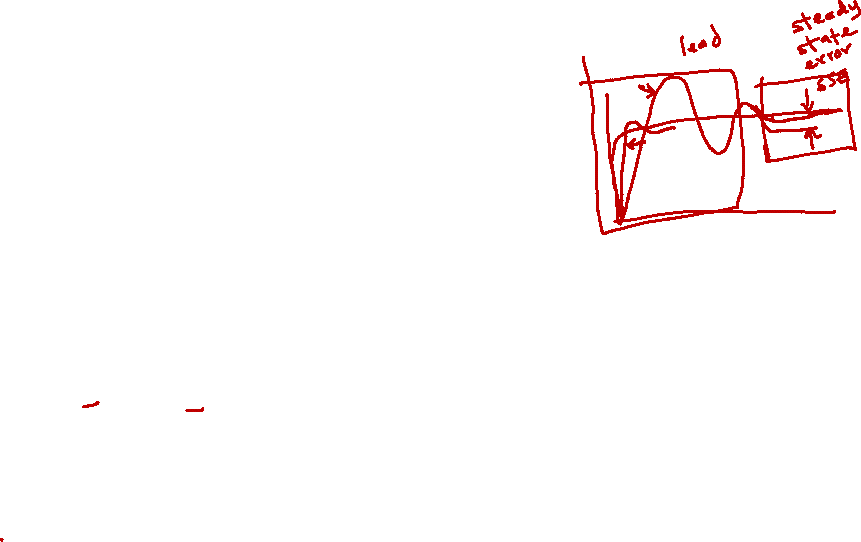 lead
steady
state
error
sse